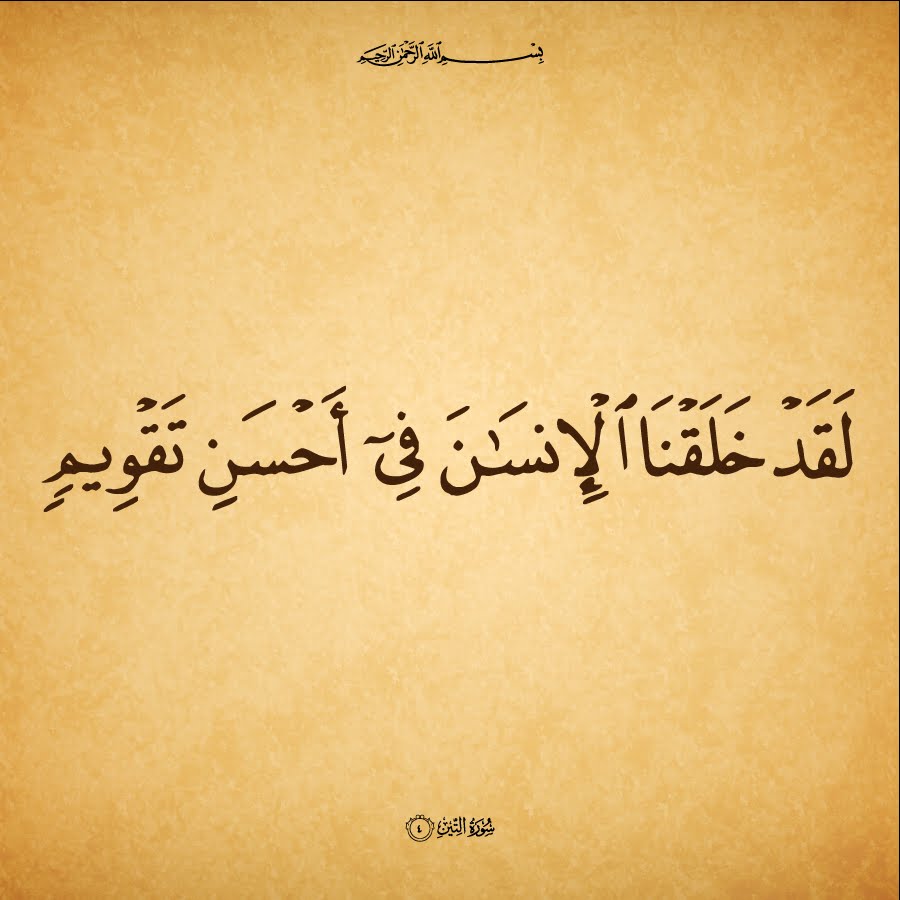 بِسْمِ اللَّهِ الرَّحْمَٰنِ الرَّحِيمِ
لَقَدْ خَلَقْنَا ٱلْإِنسَـٰنَ فِىٓ أَحْسَنِ تَقْوِيمٍ
سُورَةُ التِّينِ ٤